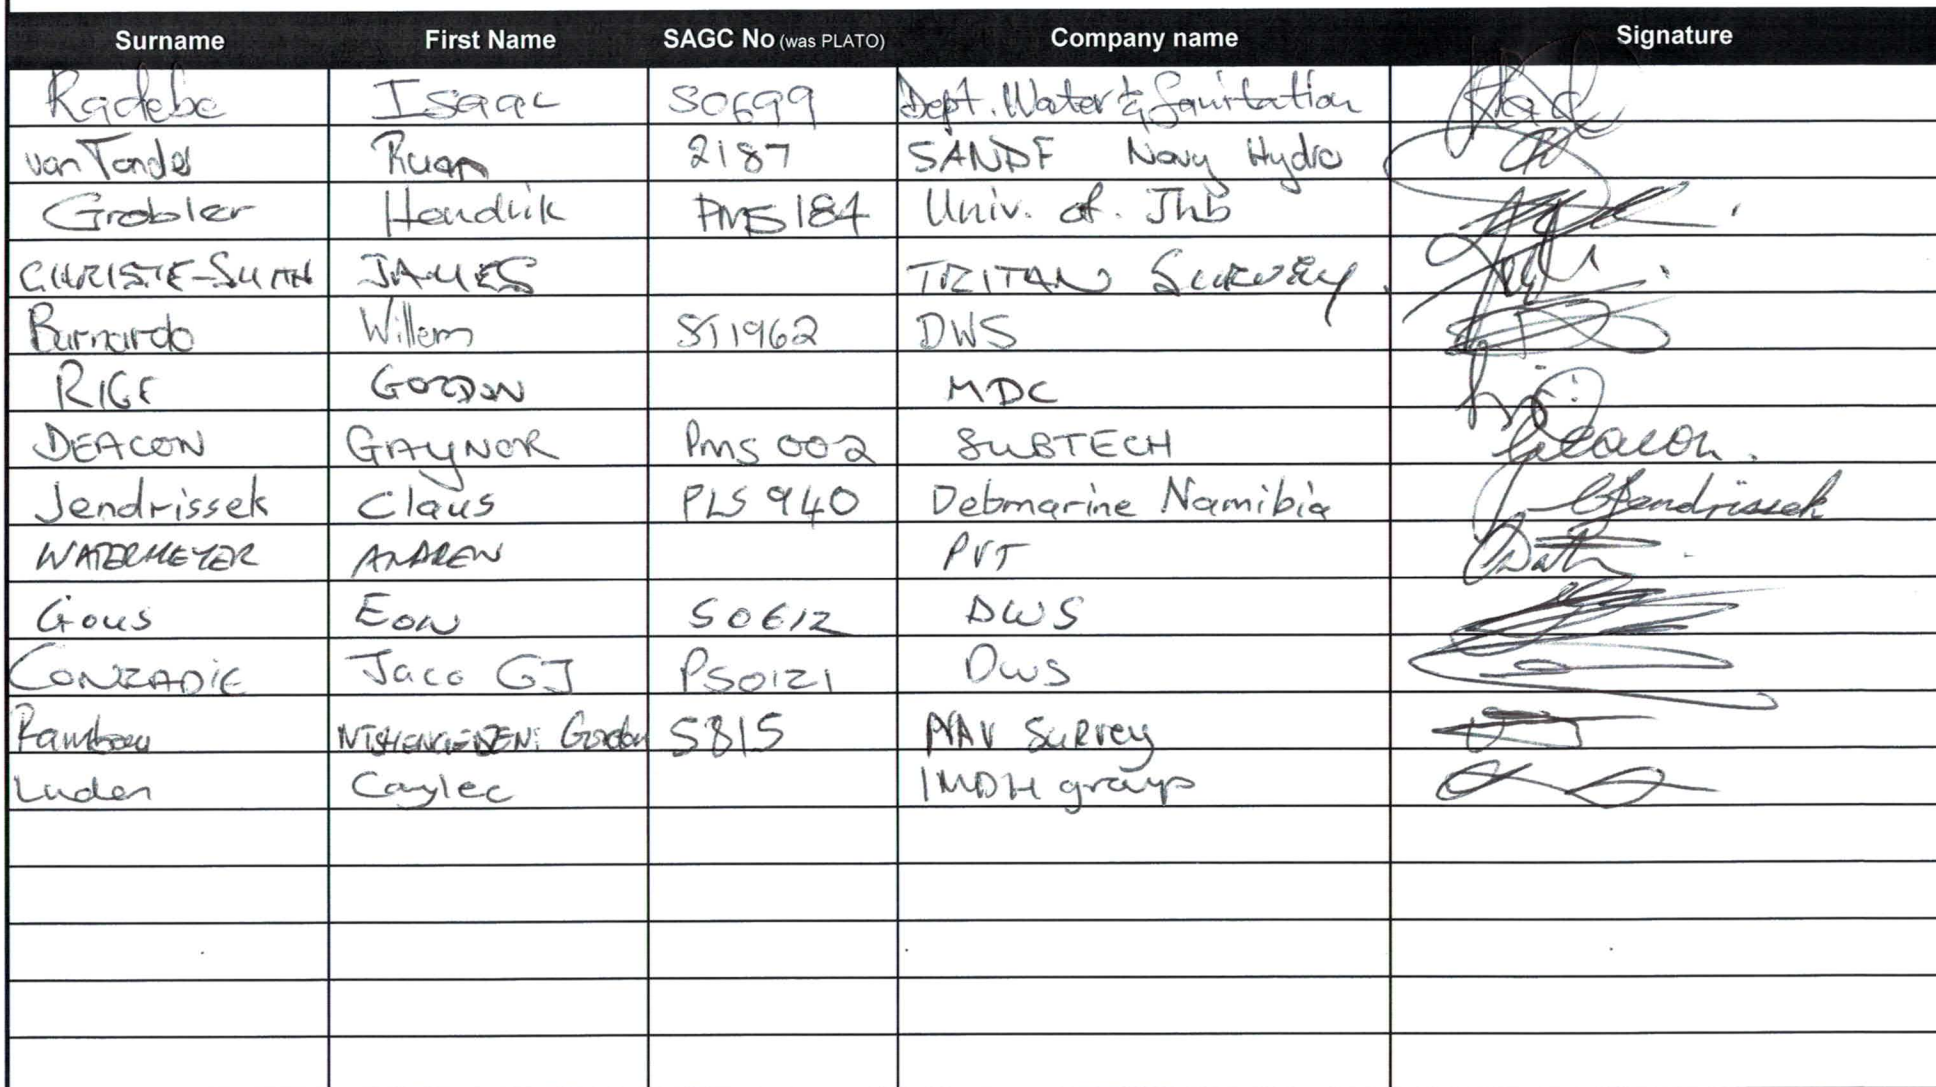 Surname First Name SAGC No (was PLATO) Company name Signature
Radebe Isaac S0699 Dept. Water & Sanitation
van Tonder Ruan 2187 SANDF Navy Hydro
Grobler Hendrik PMS184 Univ. of. Jhb
CHRISTIE-SMITH JAMES TRITAN SURVEY.
Barnardo Willem ST1962 DWS
RIGE GORDON MDC
DEACON GAYNOR Pms 002 SUBTECH Deacon.
Jendrissek Claus PLS 940 Debmarine Namibia CJendrissek
WATERMEYER ANDREW PVT
Gous Eon S0612 DWS
CONRADIE Jaco GJ PS0121 DWS
Gordon S815 NAV SURVEY
Luden Caylec IMDH group